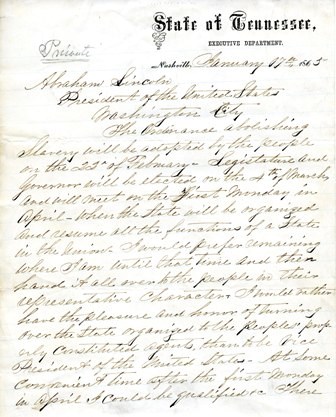 State of Tennessee,
EXECUTIVE DEPARTMENT.
Private
Nashville, January 17th 1865
Abraham Lincoln
President of the United States
Washington City
The Ordinance abolishing
Slavery will be adopted by the people
on the 22d of February - Legislature and
Governor will be elected on the 4th of March
and will meet on the First Monday in
April - when the State will be organized
and resume all the functions of a State
in the Union. I would prefer remaining
where I am until that time and then
hand it all over to the people in their
representative character. I would rather
have the pleasure and honor of turning
over the State organized to the people's prop
erly constituted agents, than to be Vice
President of the United States - At some
convenient time after the first Monday
in April I could be qualified &c There